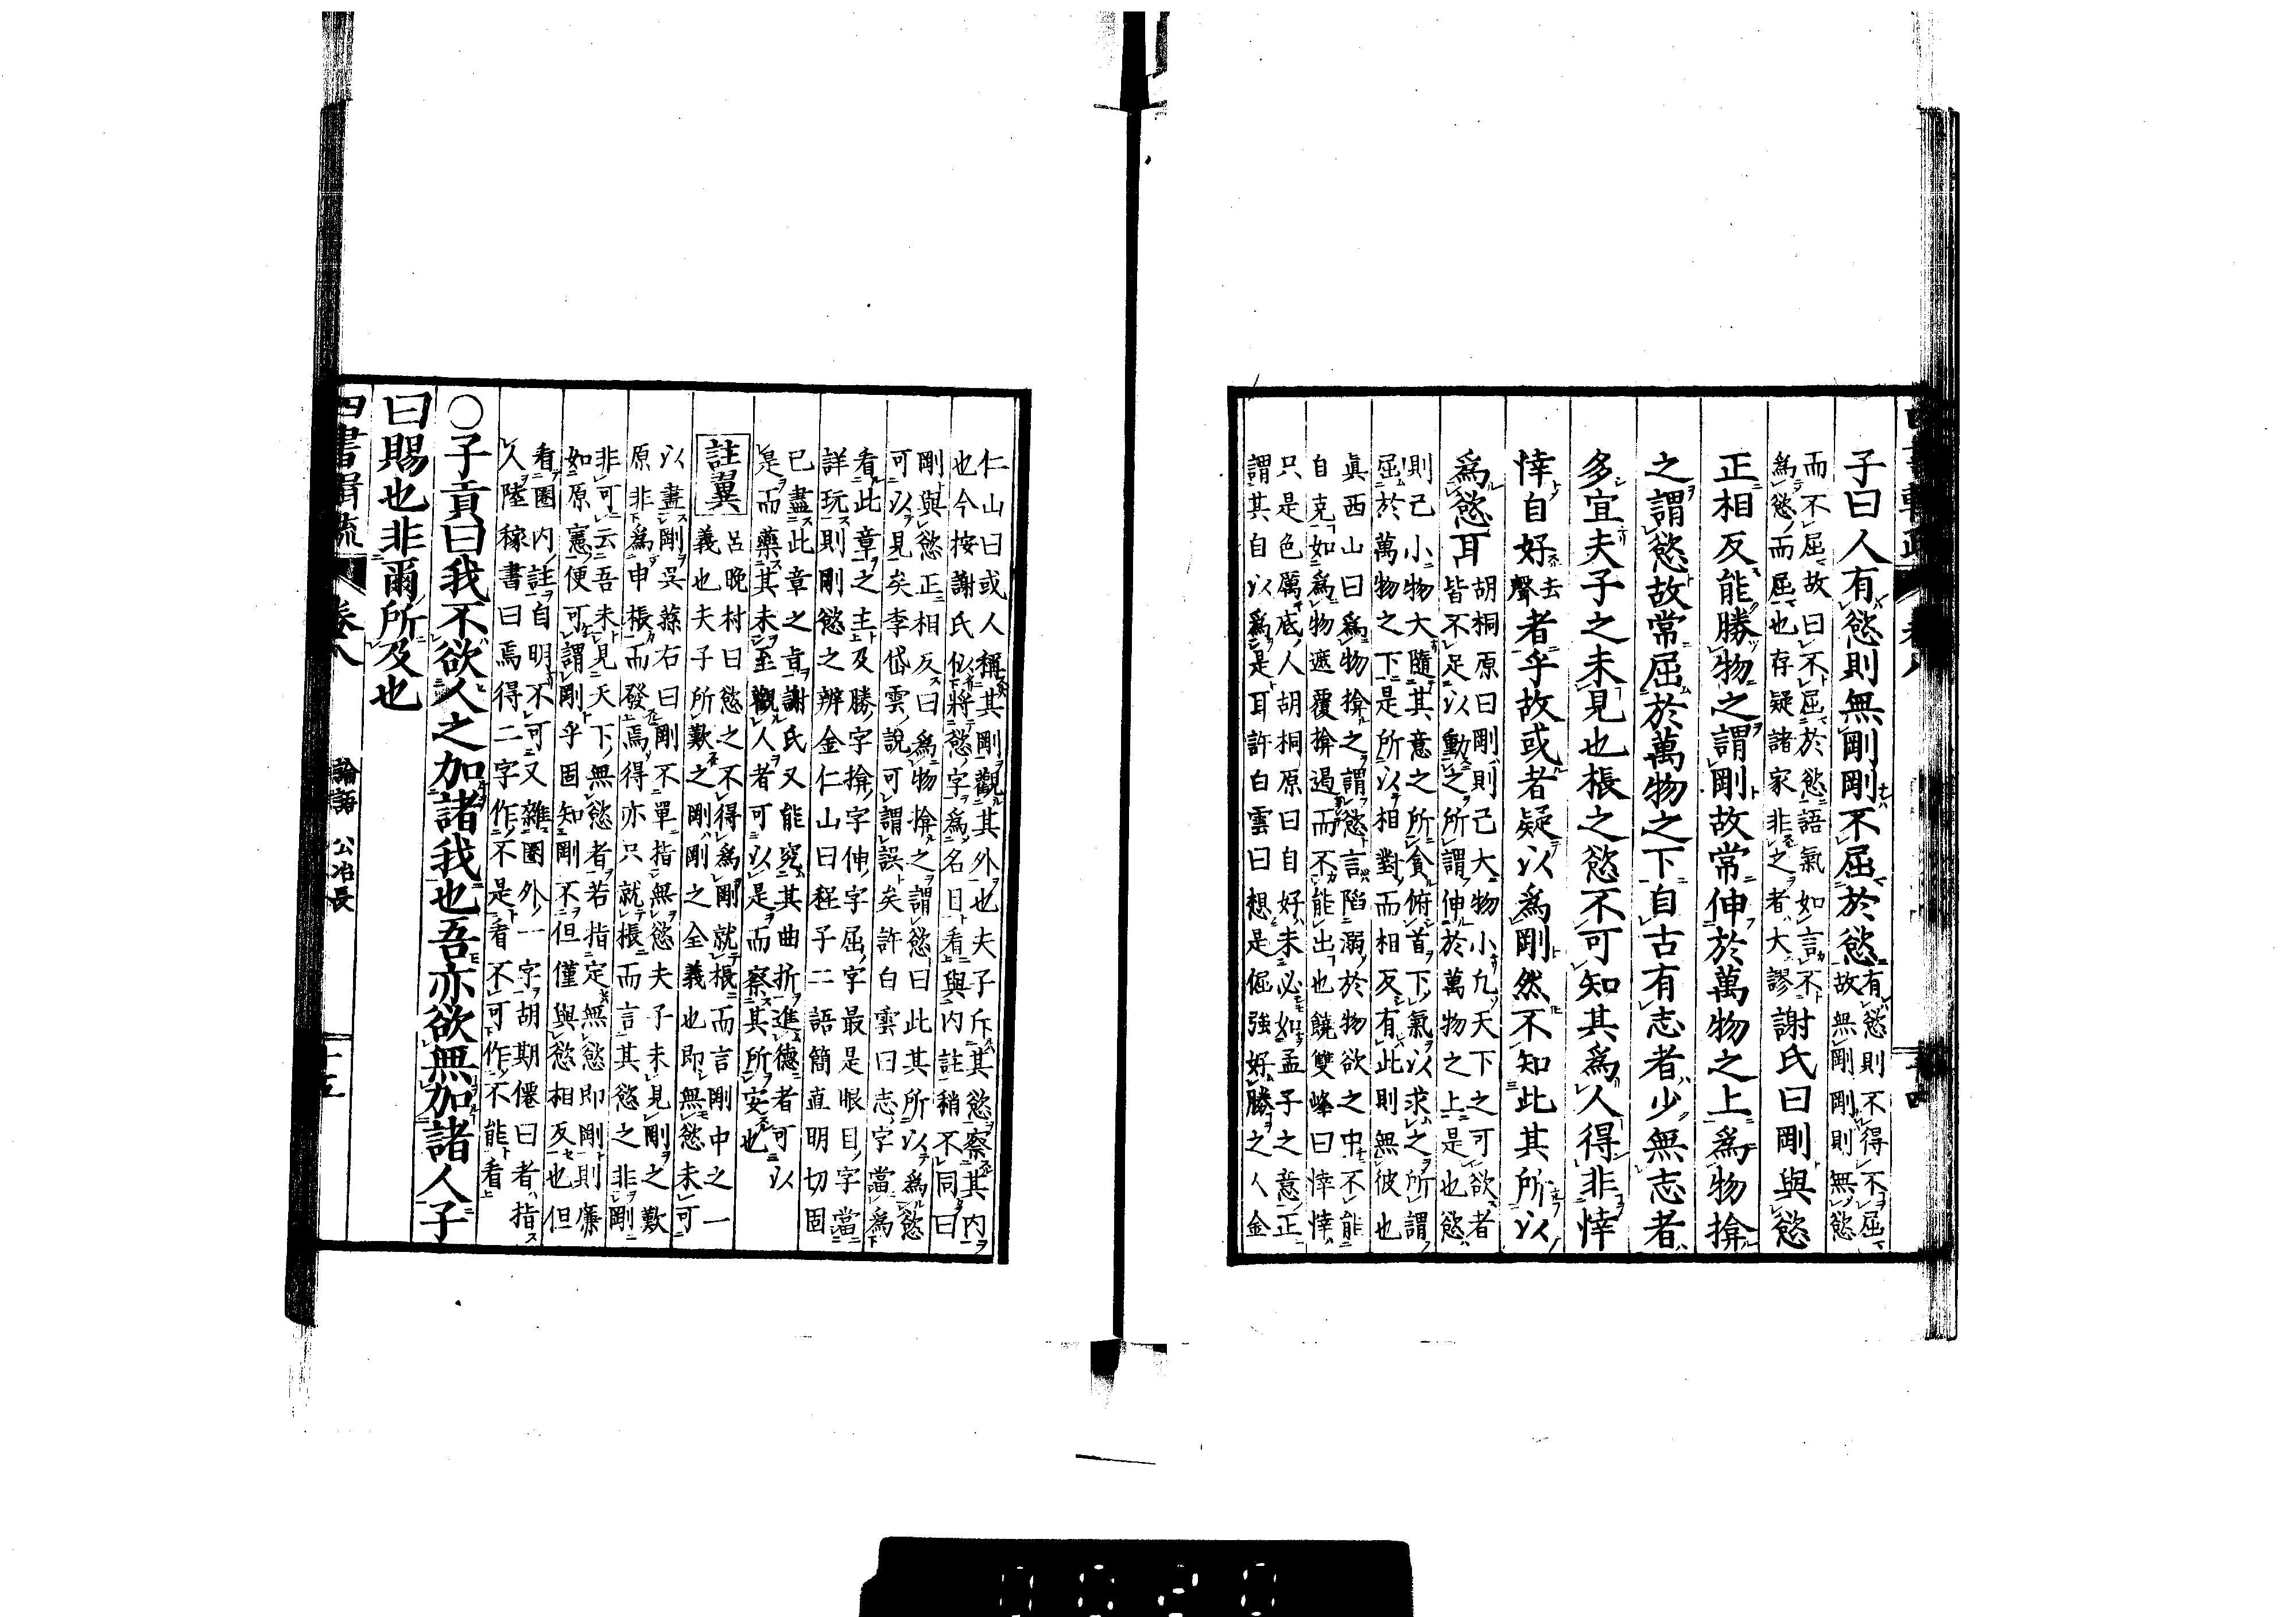 子曰人有慾則無剛剛不屈於慾有慾則不得不屈
故無剛剛則無慾
而不屈故曰不屈於慾語氣如言不
爲慾而屈也存疑諸家非之者大謬謝氏曰剛與慾
正相反能勝物之謂剛故常伸於萬物之上爲物揜
之謂慾故常屈於萬物之下自古有志者少無志者
多宜夫子之未見也棖之慾不可知其爲人得非悻
悻自好去
聲者乎故或者疑以爲剛然不知此其所以
爲慾耳胡桐原曰剛則己大物小凡天下之可欲者
皆不足以動之所謂伸於萬物之上是也慾
則己小物大隨其意之所貪俯首下氣以求之所謂
屈於萬物之下是所以相對而相反有此則無彼也
眞西山曰爲物揜之謂慾言陷溺於物欲之中不能
自克如爲物遮覆揜遏而不能出也饒雙峰曰悻悻
只是色厲底人胡桐原曰自好未必如孟子之意正
謂其自以爲是耳許白雲曰想是倔強好勝之人金
仁山曰或人稱其剛觀其外也夫子斥其慾察其内
也今按謝氏似將慾字爲名目看與内註稍不同曰
剛與慾正相反曰爲物揜之謂慾曰此其所以爲慾
可以見矣李岱雲說可謂誤矣許白雲曰志字當爲
看此章之主及勝字揜字伸字屈字最是眼目字當
詳玩則剛慾之辨金仁山曰程子二語簡直明切固
已盡此章之旨謝氏又能究其曲折進德者可以
是而藥其未至觀人者可以是而察其所安也
註翼
呂晚村曰慾之不得爲剛就棖而言剛中之一
義也夫子所歎之剛剛之全義也即無慾未可
以盡剛吳蓀右曰剛不單指無慾夫子未見剛之歎
原非爲申棖而發焉得亦只就棖而言其慾之非剛
非可云吾未見天下無慾者若指定無慾即剛則廉
如原憲便可謂剛乎固知剛不但僅與慾相反也但
看圈内註自明不可又雜圈外一字胡期僊曰者指
人陸稼書曰焉得二字作不是看不可作不能看
○子貢曰我不欲人之加諸我也吾亦欲無加諸人子
曰賜也非爾所及也
四書輯疏
卷八
論語 公冶長
十五